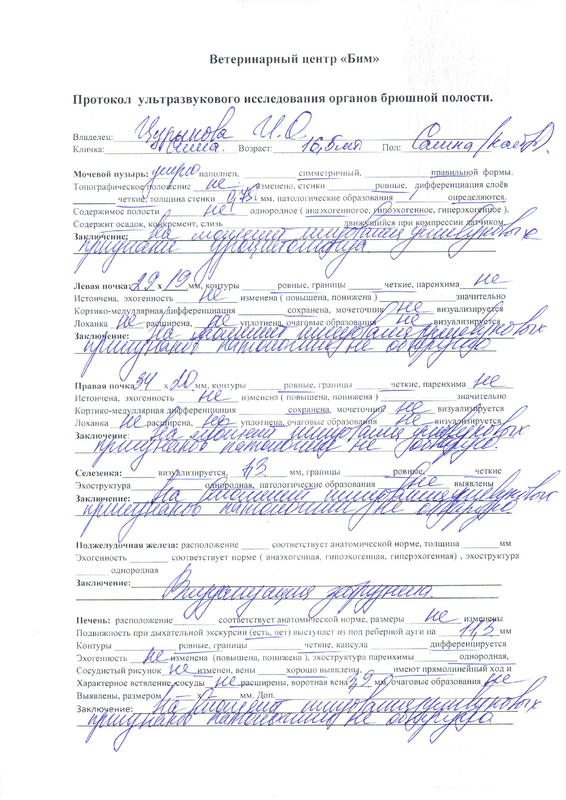 Ветеринарный центр «Бим»
Протокол ультразвукового исследования органов брюшной полости.
Владелец: Цурыкова И.О.
Кличка: Возраст: Пол: Самка /каст).
Мочевой пузырь: умерно наполнен, симметричный, правильной формы.
Топографическое положение не изменено, стенки ровные, дифференциация слоёв
четкие, толщина стенки мм, патологические образования определяются.
Содержимое полости не однородное ( анаэхогенногое, гипоэхогенное, гиперэхогенное ).
Содержит осадок, конкремент, слизь движущийся при компрессии датчиком.
Заключение: на момент ультразвуковых
признаки уроцистолитиаза.
Левая почка: 29 х 19 мм, контуры ровные, границы четкие, паренхима не
Истончена, эхогенность не изменена ( повышена, понижена ) значительно
Кортико-медуллярная дифференциация сохранена, мочеточник не визуализируется
Лоханка не расширена, не уплотнена, очаговые образования не визуализируется
Заключение: На момент ультразвуковых
признаков патологии не обнаружено
Правая почка 34 х 20 мм, контуры ровные, границы четкие, паренхима не
Истончена, эхогенность не изменена ( повышена, понижена ) значительно
Кортико-медуллярная дифференциация сохранена, мочеточник не визуализируется
Лоханка не расширена, не уплотнена, очаговые образования не визуализируется
Заключение: На момент ультразвуковых
признаков патологии не обнаружено.
Селезенка: визуализируется, мм, границы ровные, четкие
Эхоструктура однородная, патологические образования не выявлены
Заключение: На момент ультразвуковых
признаков патологии не обнаружено
Поджелудочная железа: расположение соответствует анатомической норме, толщина мм
Эхогенность соответствует норме ( анаэхогенная, гипоэхогенная, гиперэхогенная) , эхоструктура
однородная
Заключение: Визуализация затруднена.
Печень: расположение соответствует анатомической норме, размеры не изменены
Подвижность при дыхательной экскурсии (есть, нет) выступает из под реберной дуги на 11,3 мм
Контуры ровные, границы четкие, капсула дифференцируется
Эхогенность не изменена (повышена, понижена ), эхоструктура паренхимы однородная,
Сосудистый рисунок не изменен, вены хорошо выявлены. имеют прямолинейный ход и
Характерное ветвление, сосуды не расширены, воротная вена 3,9 мм, очаговые образования не
Выявлены, размером х мм. Доп.
Заключение: На момент ультразвуковых
признаков патологии не обнаружено